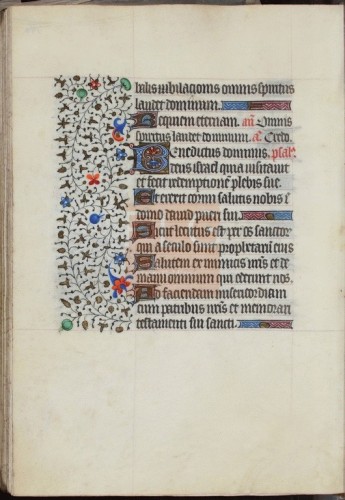 bilis iubilacionis omnis spiritus
laudet dominum.
Requiem eternam. añ Omnis
spiritus laudet dominum. a Credo.
Benedictus dominus. psal
deus israel quia uisitauit
et fecit redemptionē plebis sue.
Et erexit cornu salutis nobis ī
domo dauid pueri sui.
Sicut locutus est per os sanctor
qui a seculo sunt prophetarū eius
Salutem ex inimicis nr̄is et de
manu omnium qui oderunt nos.
Ad faciendam misericordiam
cum patribus nr̄is et memorari
testamenti sui sancti.